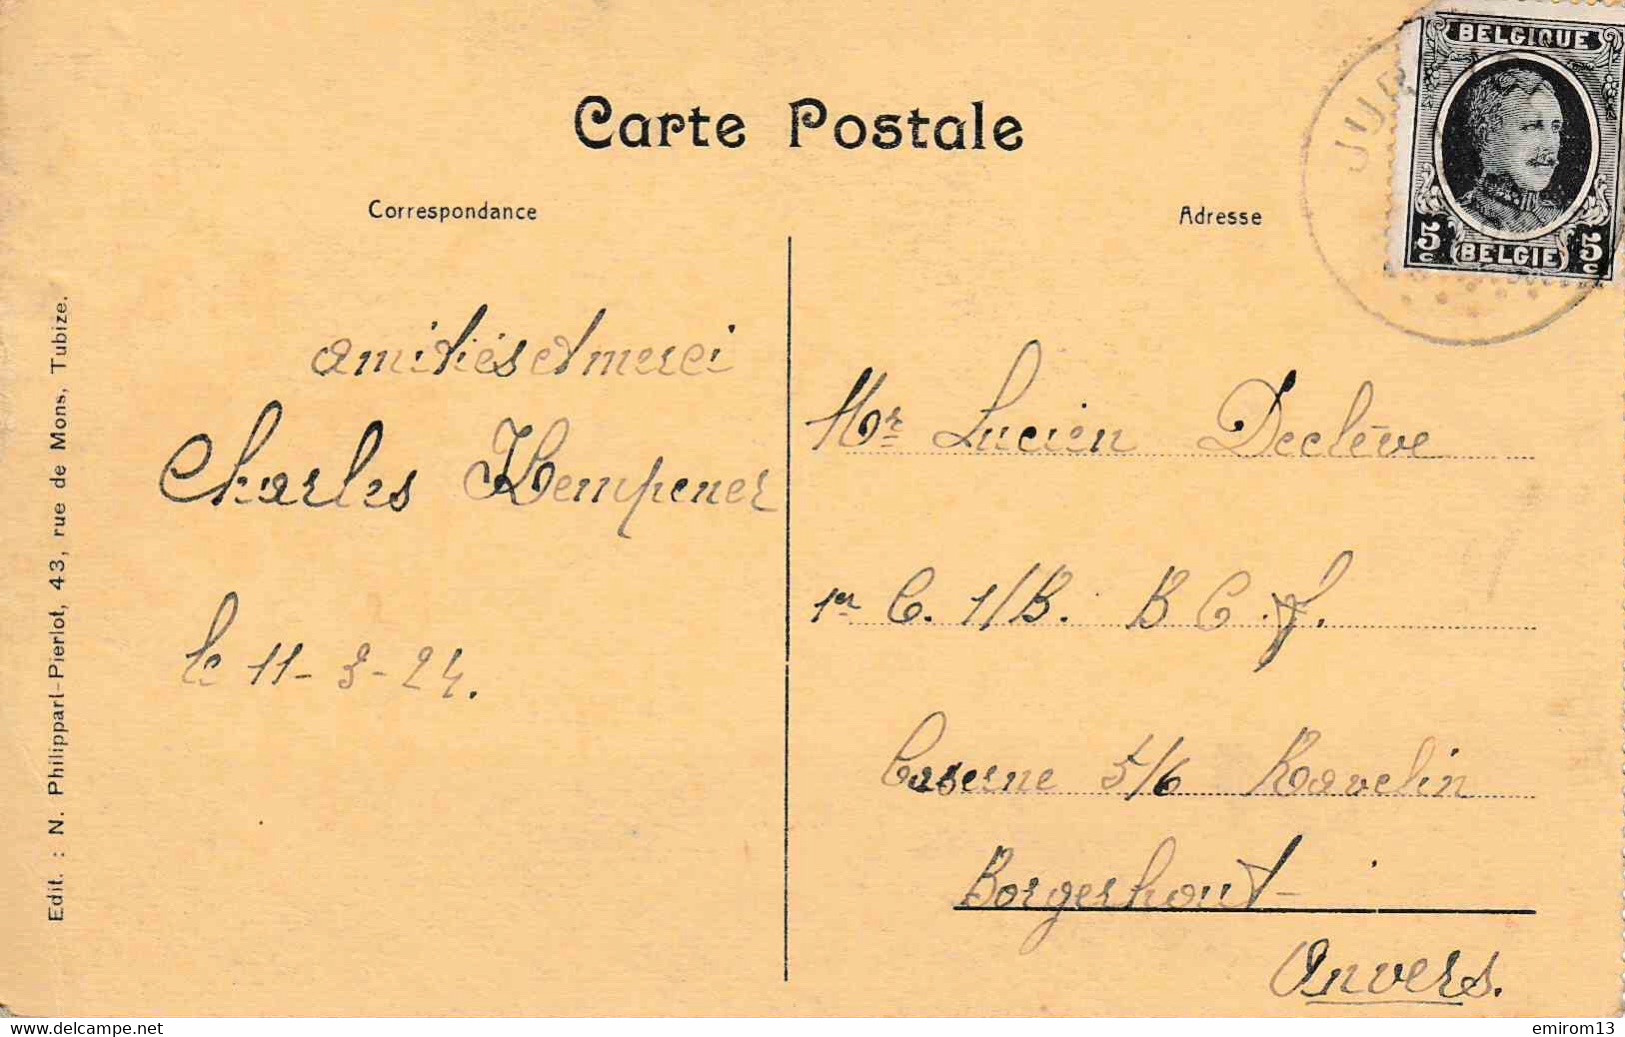 Carte Postale
Correspondance
Adresse
BELGIQUE
5c BELGIE 5c
Edit. : N. Philippart-Pierlot, 43, rue de Mons, Tubize.
amitiés et merci
Charles Kempener
le 11-3-24.
Mr Lucien Declève
1er C. 1/B. B C .f.
Caserne 5/6 Ravelin
Borgerhout-
Anvers.
www.delcampe.net
emirom13